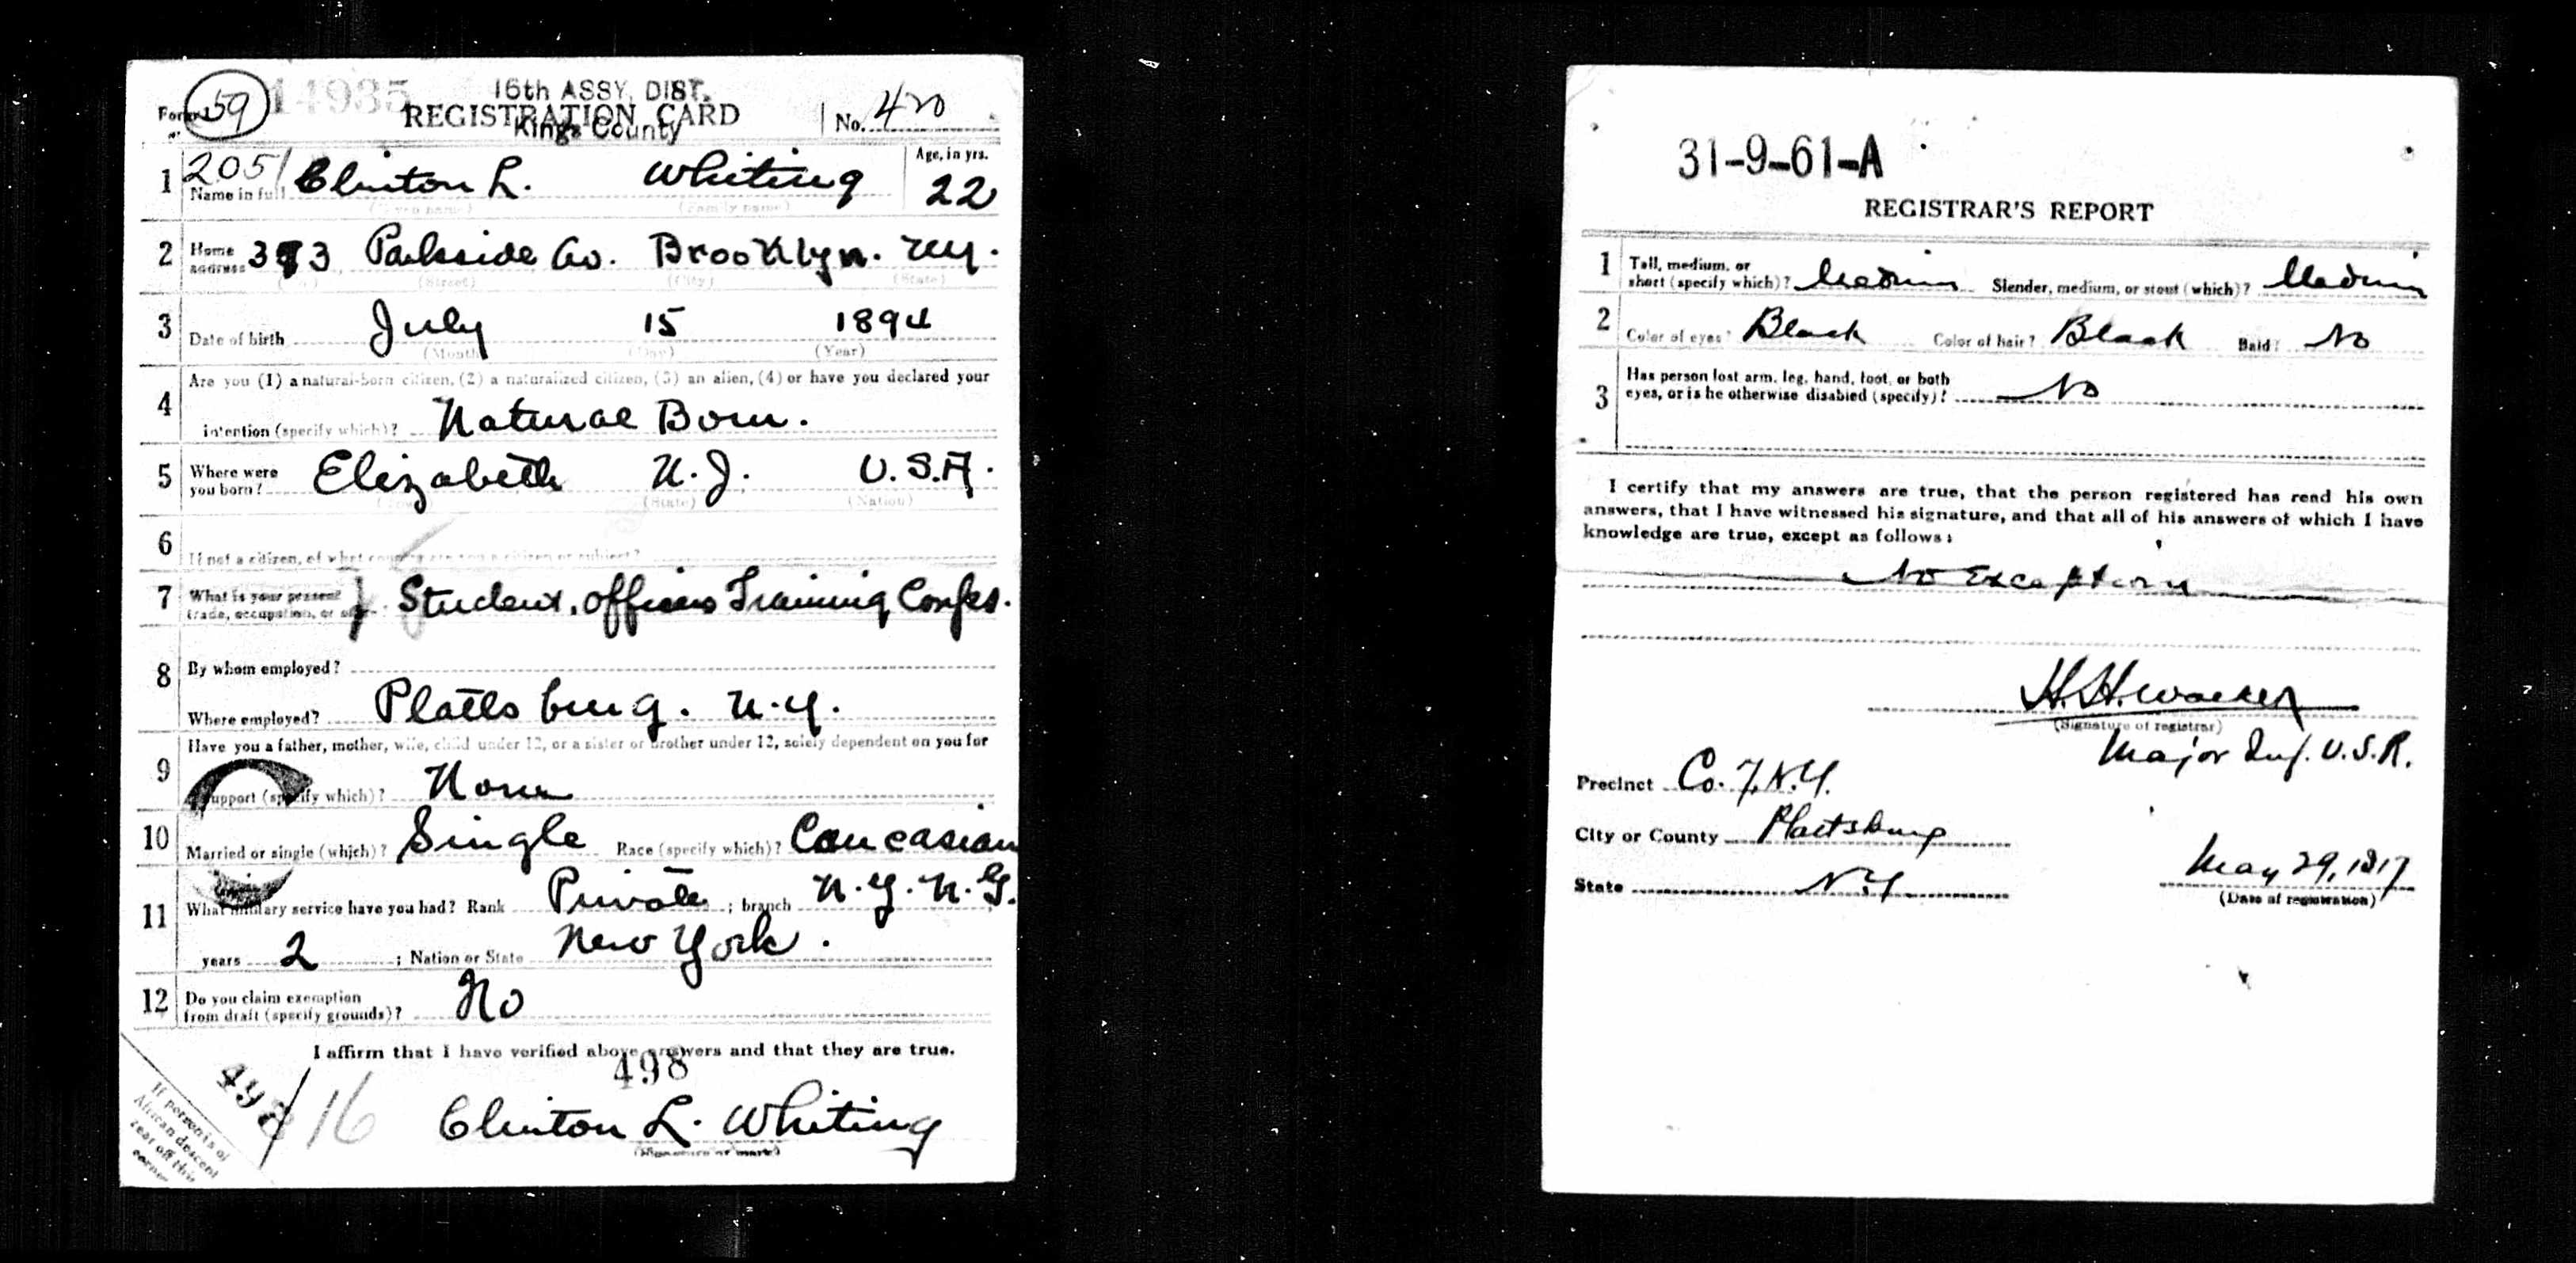 59 14935 16th ASSY. DIST.
REGISTRATION CARD No. 420
Kings County
1 205 Name in full Clinton L. Whiting Age, in yrs. 22
(Given name) (Family name)
2 Home address 393 Parkside Av. Brooklyn. N.Y.
(No.) (Street) (City) (State)
3 Date of birth July 15 1894
(Month) (Day) (Year)
4 Are you (1) a natural-born citizen, (2) a naturalized citizen, (3) an alien, (4) or have you declared your
intention (specify which)? Natural Born.
5 Where were you born? Elizabeth N.J. U.S.A.
(State) (Nation)
6 If not a citizen, of what country are you a citizen or subject?
7 What is your present trade, occupation, or Student, Officers Training Corps.
8 By whom employed?
Where employed? Plattsburg. N.Y.
9 Have you a father, mother, wife, child under 12, or a sister or brother under 12, solely dependent on you for
support (specify which)? None
10 Married or single (which)? Single Race (specify which)? Caucasian
11 What military service have you had? Rank Private ; branch N.Y.N.G.
years 2 ; Nation or State New York.
12 Do you claim exemption
from draft (specify grounds)? No
I affirm that I have verified above answers and that they are true.
498
498 / 16
Clinton L. Whiting
(Signature or mark)
If person is of
African descent
tear off this
corner
31-9-61-A
REGISTRAR'S REPORT
1 Tall, medium, or
short (specify which)? Medium Slender, medium, or stout (which)? Medium
2 Color of eyes? Black Color of hair? Black Bald? No
3 Has person lost arm, leg, hand, foot, or both
eyes, or is he otherwise disabled (specify)? No
I certify that my answers are true, that the person registered has read his own
answers, that I have witnessed his signature, and that all of his answers of which I have
knowledge are true, except as follows:
No Exception
H. H. Walker
(Signature of registrar)
Major Inf. U.S.R.
Precinct Co. 7, N.Y.
City or County Plattsburg
State N.Y. May 29, 1917
(Date of registration)